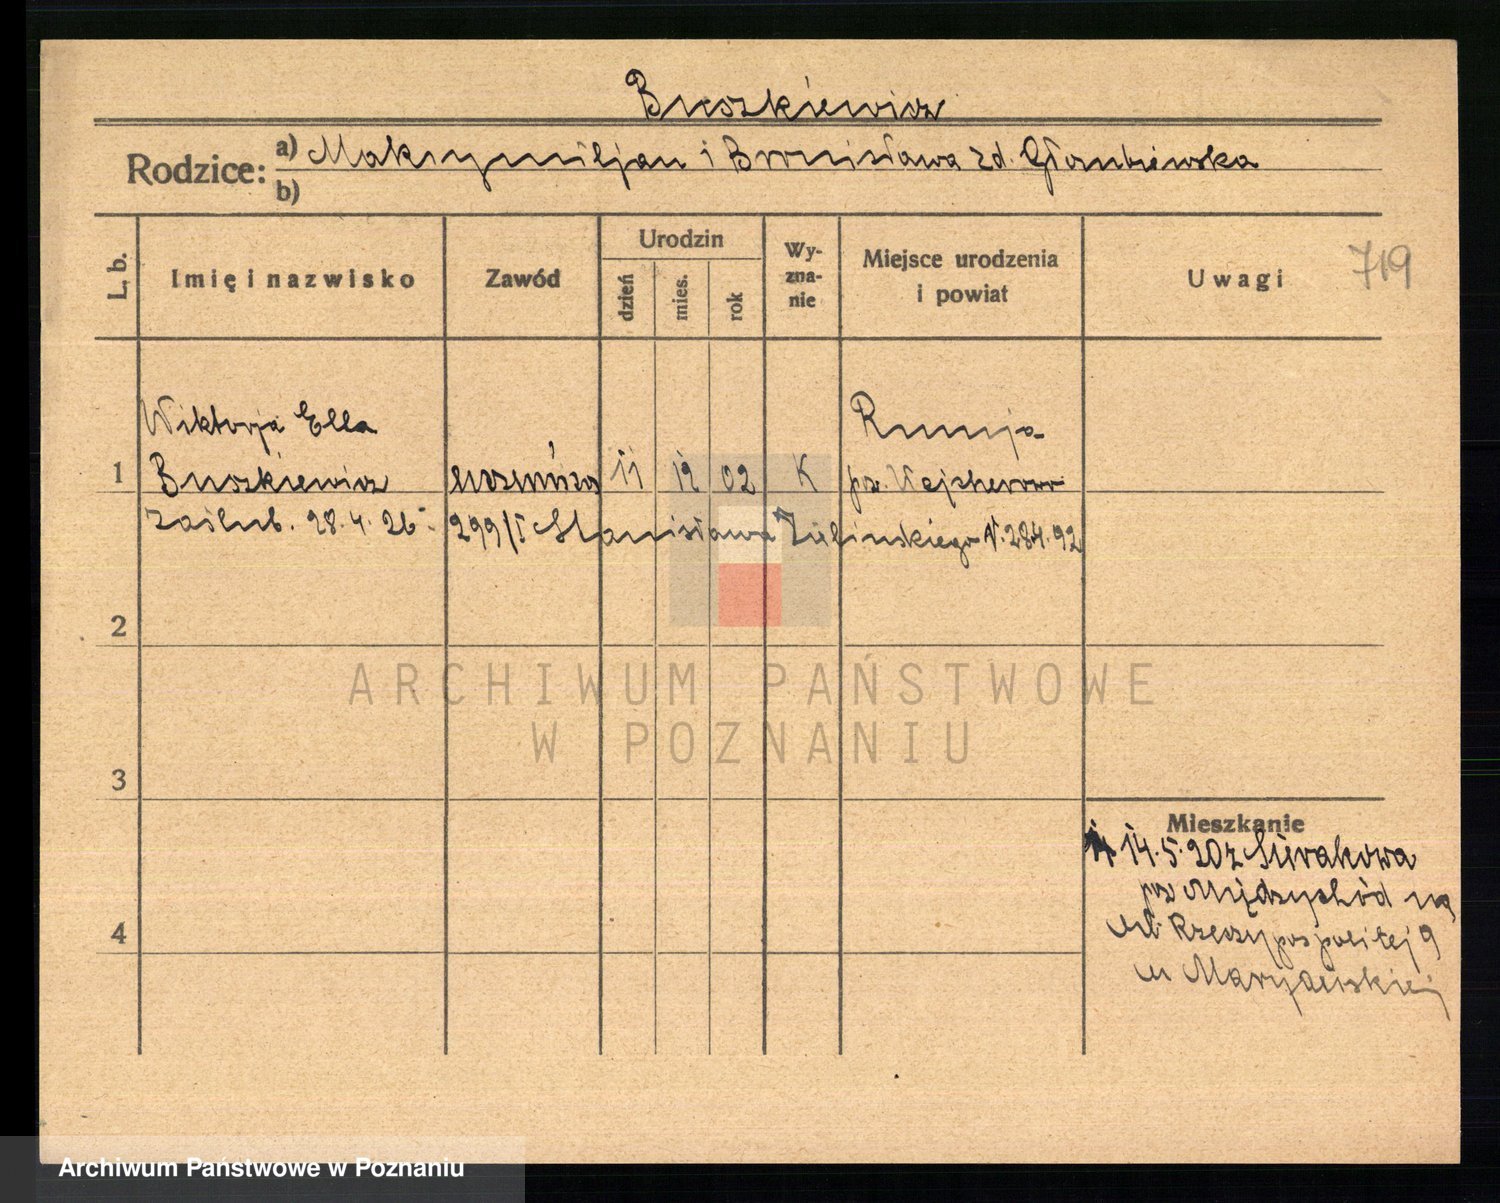 Buszkiewicz
Rodzice: a) Maksymiljan i Bronisława zd. Głombiewska
b)
L. b.
Imię i nazwisko
Zawód
Urodzin
dzień
mies.
rok
Wy-
zna-
nie
Miejsce urodzenia
i powiat
Uwagi
719
Wiktorja Ella
Buszkiewicz
1
11 12 02 K
Rumja
pw.
zaślub. 28.4.26
299/I Stanisława Zielinskiego
2
3
4
Mieszkanie
14.5.20 z Sierakowa
pw Międzychód na
ul. Rzeczypospolitej 9
u
ARCHIWUM PAŃSTWOWE
W POZNANIU
Archiwum Państwowe w Poznaniu